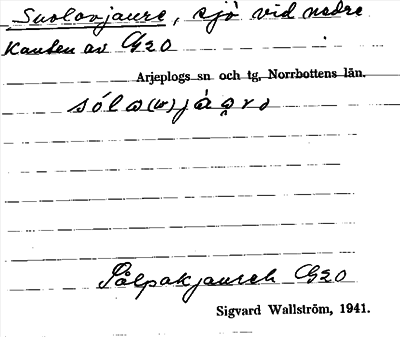 Suolovjaure, sjö vid nedre
kanten av G20
Arjeplogs sn och tg, Norrbottens län.
sólɒ(w)jȧ
Pålpakjaureh G20
Sigvard Wallström, 1941.